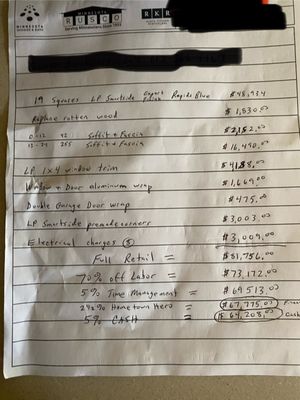 MINNESOTA
WINDOW & SIDING
MINNESOTA
RUSCO
Serving Minnesotans Since 1955
RKR
19 Squares LP Smartside Expert Finish Rapids Blue $48,934
Replace rotten wood $1,530.00
0-12 42 Soffit + Fascia $2,152.00
12-24 265 Soffit + Fascia $16,490.00
LP 1x4 window trim $4188.00
Window + Door aluminum wrap $1,669.00
Double Garage Door wrap $475.00
LP Smartside premade corners $3,003.00
Electrical charges (3) $3,009.00
Full Retail = $81,756.00
70% off Labor = $73,172.00
5% Time Management = $69,513.00
2½% Hometown Hero = $67,775.00
5% CASH = $64,208.00 Cash